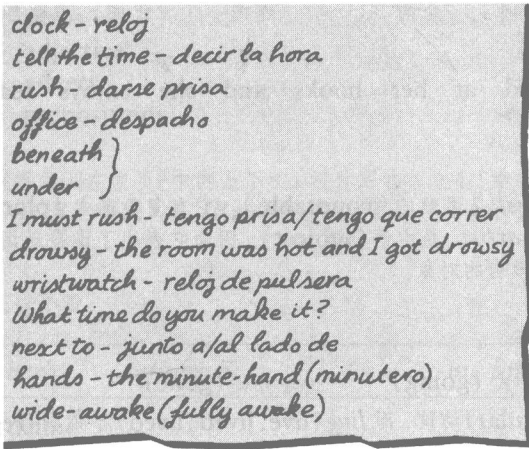 clock – reloj
tell the time – decir la hora
rush – darse prisa
office – despacho
beneath }
under
I must rush – tengo prisa/tengo que correr
drowsy – the room was hot and I got drowsy
wristwatch – reloj de pulsera
What time do you make it?
next to – junto a/al lado de
hands – the minute-hand (minutero)
wide-awake (fully awake)